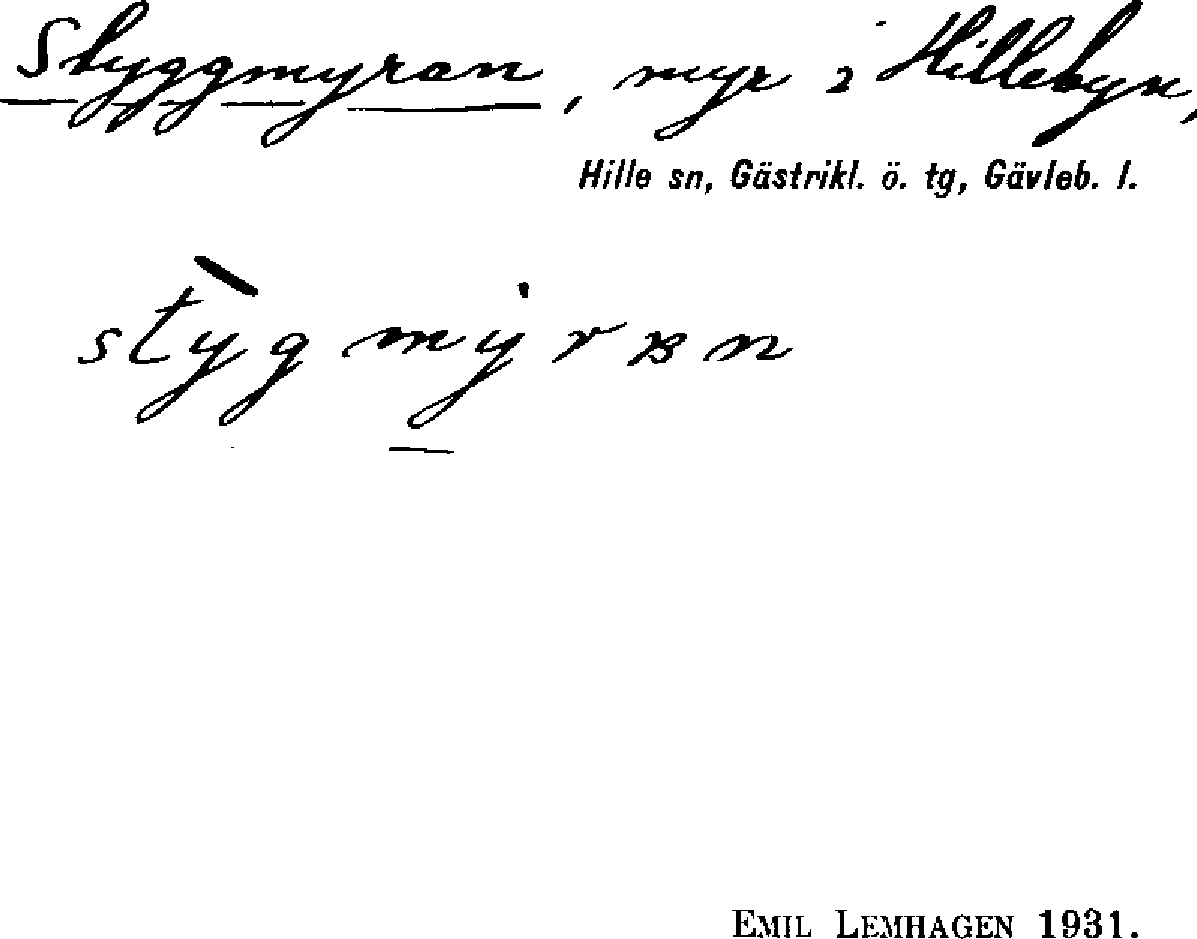 Styggmyran, myr i Hillebyn,
Hille sn, Gästrikl. ö. tg, Gävleb. l.
stỳgmyrɐn
EMIL LEMHAGEN 1931.